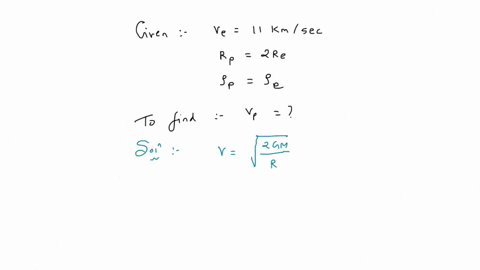 Given :- ve = 11 Km/sec
Rp = 2Re
ρp = ρe
To find :- vp = ?
Solⁿ :- v = √(2GM/R)